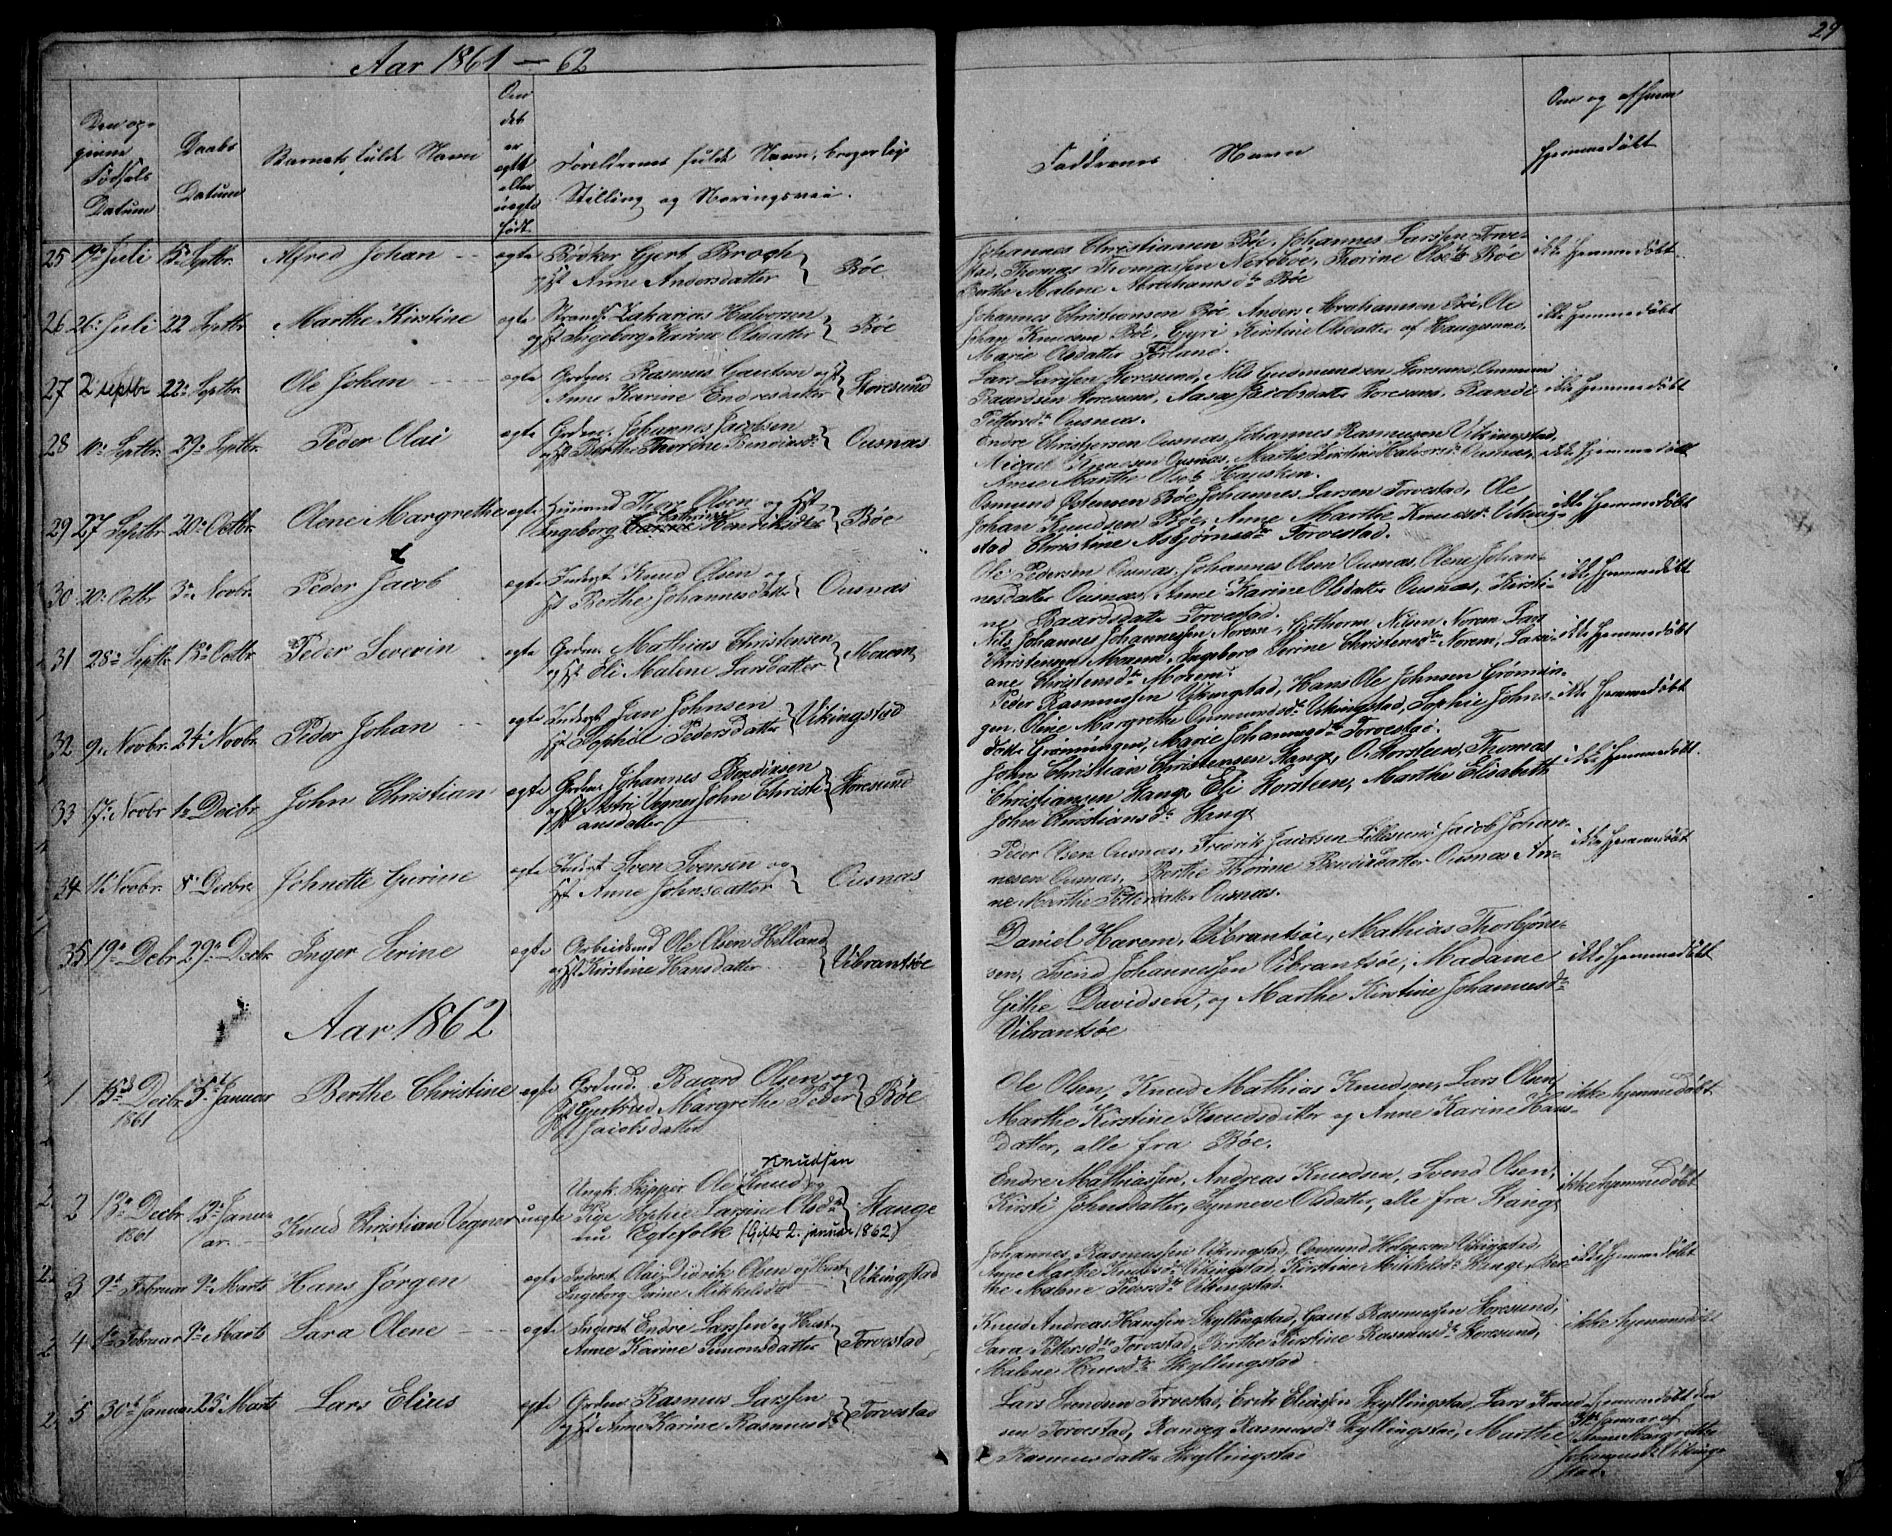 29
Aar 1861 — 62
Den op-
givne
Fødsels
Datum
Daabs
Datum
Barnets fulde Navn
Om
det
er
ægte
eller
uægte
født
Forældrenes fulde Navn, borgerlige
Stilling og Næringsvei.
Faddernes Navn
Om og af hvem
hjemmedøbt
25 19 Juli 15 Septbr. Alfred Johan ægte Bödker Gjert Brogh
og Hst Anne Andersdatter Böe
Johannes Christiansen Böe, Johannes Larssen Torve-
stad, Thomas Thomassen Nordboe, Thorine Olsdtr Böe
Berthe Malene Abrahamsdtr Böe
ikke hjemmedøbt
26 26: Juli 22 Septbr Marthe Kirstine ægte Strands. Zakarias Halvorsen
og Hst Ingeborg Karine Olsdatter Böe
Johannes Christiansen Böe, Anders Abrahamsen Böe, Ole
Johan Knudsen Böe, Gyri Kirstine Olsdatter af Haugesund,
Marie Olsdatter Förland.
ikke hjemmedøbt
27 2 septbr 22 Septbr. Ole Johan ægte Grdm. Rasmus Gautsen og Hst
Anne Karine Endresdatter Storesund
Lars Larssen Storesund, Nils Gudmundsen Storesund,
Baardsen Storesund, Aasa Jacobsdatter Storesund, Randi
Pettersdtr Ousnas.
ikke hjemmedøbt
28 10 Septbr. 29 Septbr. Peder Olai ægte Grdm. Johannes Jacobsen
og Hst Berthe Thorine Bendixsdtr Ousnas
Endre Christophersen Ousnas, Johannes Rasmussen Vikingstad,
Knudsen Ousnas, Marthe Kirstine Halvorsdtr Ousnas,
Anne Marthe Olsdtr Hausken.
ikke hjemmedøbt
29 27 Septbr. 20 Octbr. Olene Margrethe ægte Huusmand Thore Olsen og Hst
Ingeborg Henriksdtr Böe
Osmund Östensen Böe, Johannes Larsen Torvestad, Ole
Johan Knudsen Böe, Anne Marthe Knudsdtr Viking-
stad Christine Asbjørnsdtr Torvestad.
ikke hjemmedøbt
30 20 Octbr 3 Novbr. Peder Jacob ægte Inderst Knud Olsen og
Hst Berthe Johannesdatter Ousnas
Ole Pedersen Ousnas, Johannes Olsen Ousnas, Olene Johan-
nesdatter Ousnas, Anne Karine Olsdatter Ousnas, Kirsti-
ne Baardsdatter Torvestad.
ikke hjemmedøbt
31 28 Septbr 13 Octbr. Peder Severin ægte Grdm. Mathias Christensen
og Hst Eli Malene Larsdatter
Nils Johannes Johannessen Norem, Guthorm Nilsen Norem, Lars
Christensen, Ingeborg Serine Christensdtr Norem,
ane Christensdtr
ikke hjemmedøbt
32 9 Novbr. 24 Novbr. Peder Johan ægte Inderst Jan Johnsen
Hst Sophie Pedersdatter Vikingstad
Peder Rasmussen Vikingstad, Hans Ole Johnsen Grønnin-
gen, Oline Margrethe Osmundsdtr Vikingstad, Sophie Johns-
datter Grønningen, Marie Johannesdtr Torvestad.
ikke hjemmedøbt
33 17 Novbr 1 Decbr John Christian ægte Grdm. Johannes Bendixsen
Vegner John Christi-
ansdatter Storesund
John Christian Christensen Stange, O. Storsteen, Thomas
Christiansen Stange, Eli Storsteen, Marthe Elisabeth
John Christiansdtr Stange
ikke hjemmedøbt
34 11 Novbr. 8 Decbr. Johnette Gurine ægte Inderst Sven Svensen og
Hst Anne Johnsdatter Ousnas
Peder Olsen Ousnas, Fredrik Jacobsen Lillesund, Jacob Johan-
nesen Ousnas, Berthe Thorine Bendixdatter Ousnas An-
ne Marthe Pettersdatter Ousnas.
ikke hjemmedøbt
35 19 Debr. 29 Decbr. Inger Serine ægte Arbeidsmd Ole Olsen Helland
og Hst Kirstine Hansdatter Vibrantsøe
Daniel Harem, Vibrantsøe, Mathias Thorbjørn-
sen, Svend Johannessen Vibrantsøe, Madame
Githe Davidsen, og Marthe Kirstine Johannesdtr
Vibrantsøe
ikke hjemmedøbt
Aar 1862
1 15 Decbr. 1861 5 Januar Berthe Christine ægte Grdmd. Baard Olsen og
Hst Gjertrud Margrethe Peder
Jacobsdatter Böe
Ole Olsen, Knud Mathias Knudsen, Lars Olsen,
Marthe Kirstine Knudsdatter og Anne Karine Hans-
datter, alle fra Böe.
ikke hjemmedøbt
2 13 Decbr 1861 12 Janu-
ar. Knud Christian Vegner uægte Ungk. Skipper Ole Knud Knudsen og
Pige Sophie Larsine Olsdtr
nu Egtefolk (Gifte 2. januar 1862) Stange
Endre Mathiassen, Andreas Knudsen, Svend Olsen,
Kirsti Johnsdatter, Synneve Olsdatter, alle fra Stange
ikke hjemmedøbt
3 9 Februar 9 Marts Hans Jørgen ægte Inderst Olai Didrik Olsen og Hust
Ingeborg Serine Mikkelsdtr Vikingstad
Johannes Rasmussen Vikingstad, Osmund Holgersen Vikingstad
Anne Marthe Knudsdtr Vikingstad, Kirstine Mikkelsdtr Stange, Ber-
the Malene Pedersdtr Vikingstad.
ikke hjemmedøbt
4 Februar 9 Marts Sara Olene ægte Inderst Endre Larssen og Hust
Anne Karine Simonsdatter Torvestad
Knud Andreas Hanssen Skyllingstad, Gaut Rasmussen Storesund,
Sara Pettersdtr Torvestad, Berthe Kirstine Rasmusdtr Storesund,
Malene Skyllingstad
ikke hjemmedøbt
5 30 Januar 23 Marts Lars Elius ægte Grdm Rasmus Larssen
og Hst Anne Karine Rasmusdtr Torvestad
Lars Svendsen Torvestad, Erik Eliassen Skyllingstad, Lars Knud-
sen Torvestad, Ranveg Rasmusdtr Skyllingstad, Marthe
Rasmusdatter Skyllingstad
hjemmedøbt den
31 Januar af
Anne Margrethe
Johannesdtr Viking-
stad.